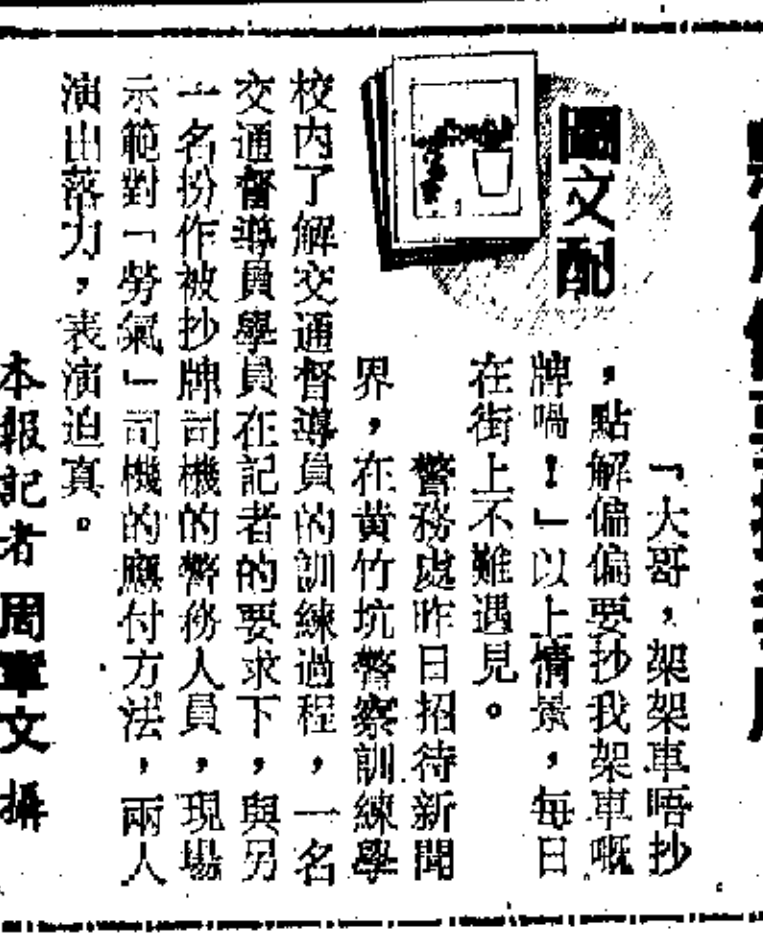 圖文配
「大哥，架架車唔抄
，點解偏偏要抄我架車嘅
牌喎！」以上情景，每日
在街上不難遇見。
警務處昨日招待新聞
界，在黃竹坑警察訓練學
校内了解交通督導員的訓練過程，一名
交通督導員學員在記者的要求下，與另
一名扮作被抄牌司機的警務人員，現場
示範對「勞氣」司機的應付方法，兩人
演出落力，表演迫真。
本報記者 周軍文 攝